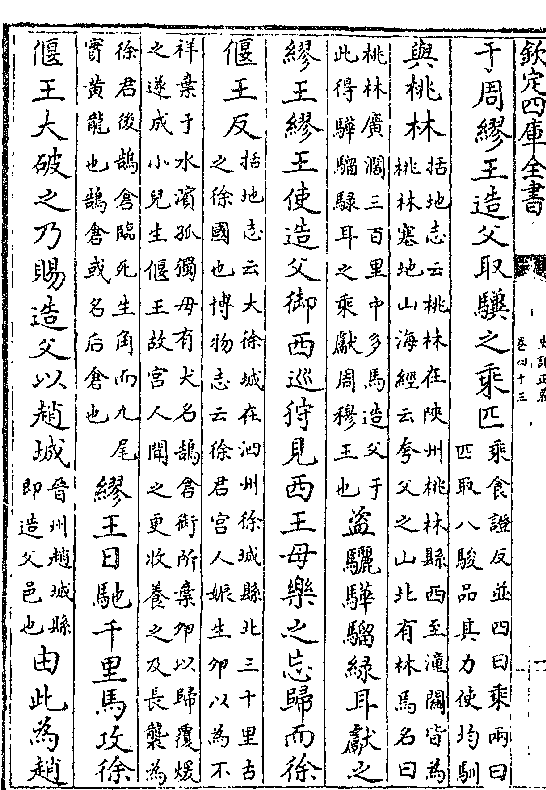 欽定四庫全書
史記正義
卷四十三
于周繆王造父取驥之乘匹
乘食證反並四曰乘兩曰
匹取八駿品其力使均馴
與桃林
括地志云桃林在陝州桃林縣西至潼關皆為
桃林塞地山海經云夸父之山北有林馬名曰
桃林廣濶三百里中多馬造父于
此得驊騮騄耳之乘獻周穆王也
盜驪驊騮緑耳獻之
繆王繆王使造父御西巡狩見西王母樂之忘歸而徐
偃王反
括地志云大徐城在泗州徐城縣北三十里古
之徐國也博物志云徐君宫人娠生卵以為不
祥棄于水濱孤獨母有犬名鵠倉銜所棄卵以歸覆煖
之遂成小兒生偃王故宫人聞之更收養之及長襲為
徐君後鵠倉臨死生角而九尾
實黄龍也鵠倉或名后倉也
繆王日馳千里馬攻徐
偃王大破之乃賜造父以趙城
晉州趙城縣
即造父邑也
由此為趙